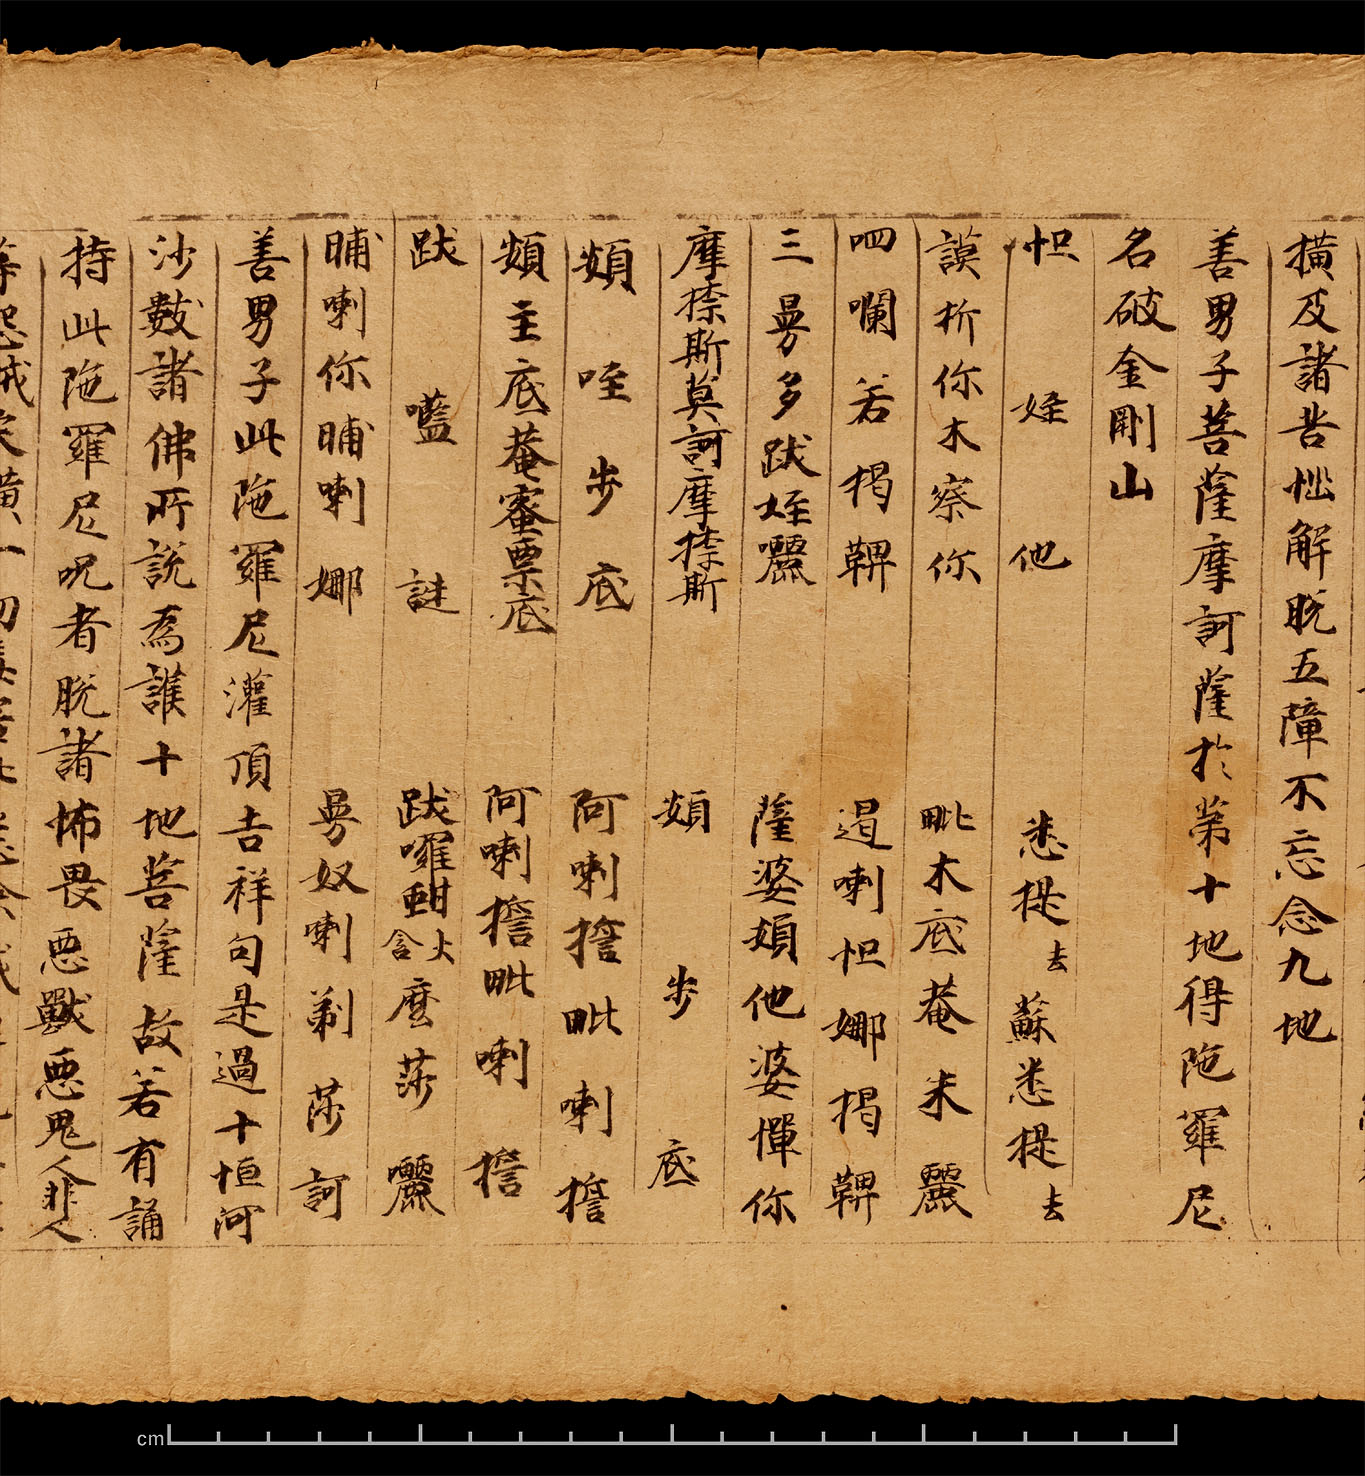 橫及諸苦惱解脫五障不忘念九地
善男子菩薩摩訶薩於第十地得陁羅尼
名破金剛山
怛姪他 悉提去蘇悉提去
謨折你木察你 毗木底菴末麗
呬囒若揭鞞 遏喇怛娜揭鞞
三曼多跋姪囇 薩婆頞他婆憚你
摩捺斯莫訶摩捺斯 頞步底
頞喹步底 阿喇擔毗喇擔
頞主底菴蜜栗底 阿喇擔毗喇擔
跋嚂謎 跋囉甜火含麼莎囇
晡喇你晡喇娜 曼奴喇剃莎訶
善男子此陁羅尼灌頂吉祥句是過十恒河
沙數諸佛所說為護十地菩薩故若有誦
持此陁羅尼呪者脫諸怖畏惡獸惡鬼人非人